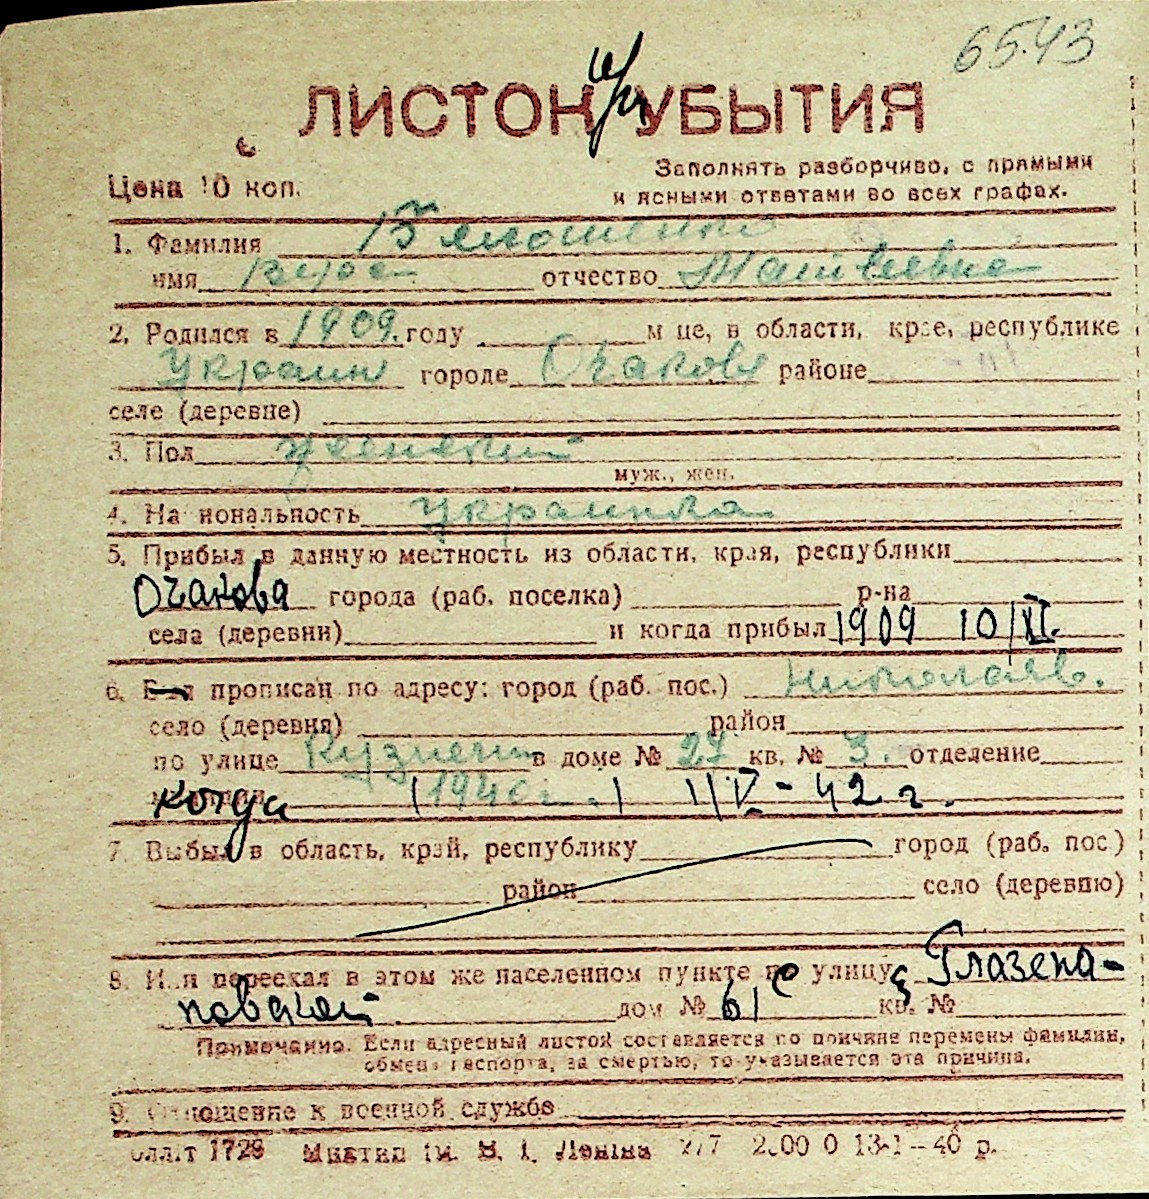 6543
ЛИСТОК УБЫТИЯ
Цена 10 коп.
Заполнять разборчиво, с прямыми
и ясными ответами во всех графах.
1. Фамилия
имя Вера отчество Матвеевна
2. Родился в 1909. году м-це, в области, крае, республике
Украин городе Очаков районе
селе (деревне)
3. Пол женский
муж., жен.
4. Национальность украинка
5. Прибыл в данную местность из области, края, республики
Очакова города (раб. поселка) р-на
села (деревни) и когда прибыл 1909 10/XI.
6. Был прописан по адресу: город (раб. пос.) Николаев.
село (деревня) район
по улице Кузнечн в доме № 27 кв. № 3. отделение
когда 1940 г. 1/IV - 42 г.
7. Выбыл в область, край, республику город (раб. пос.)
район село (деревню)
8. Или переехал в этом же населенном пункте по улицу Глазена-
повской дом № 61 кв. №
Примечание. Если адресный листок составляется по причине перемены фамилии,
обмена паспорта, за смертью, то указывается эта причина.
9. Отношение к военной службе
1729 ім. В. І. Леніна 13-I-40 р.